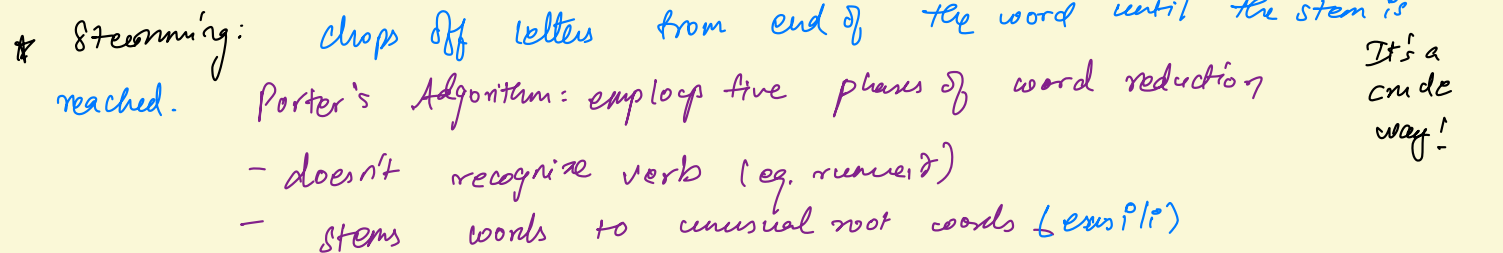 * Stemming: chops off letters from end of the word until the stem is
reached. Porter's Algorithm: employs five phases of word reduction
It's a
crude
way!
- doesn't recognize verb (eg. runner)
- stems words to unusual root words (easili)